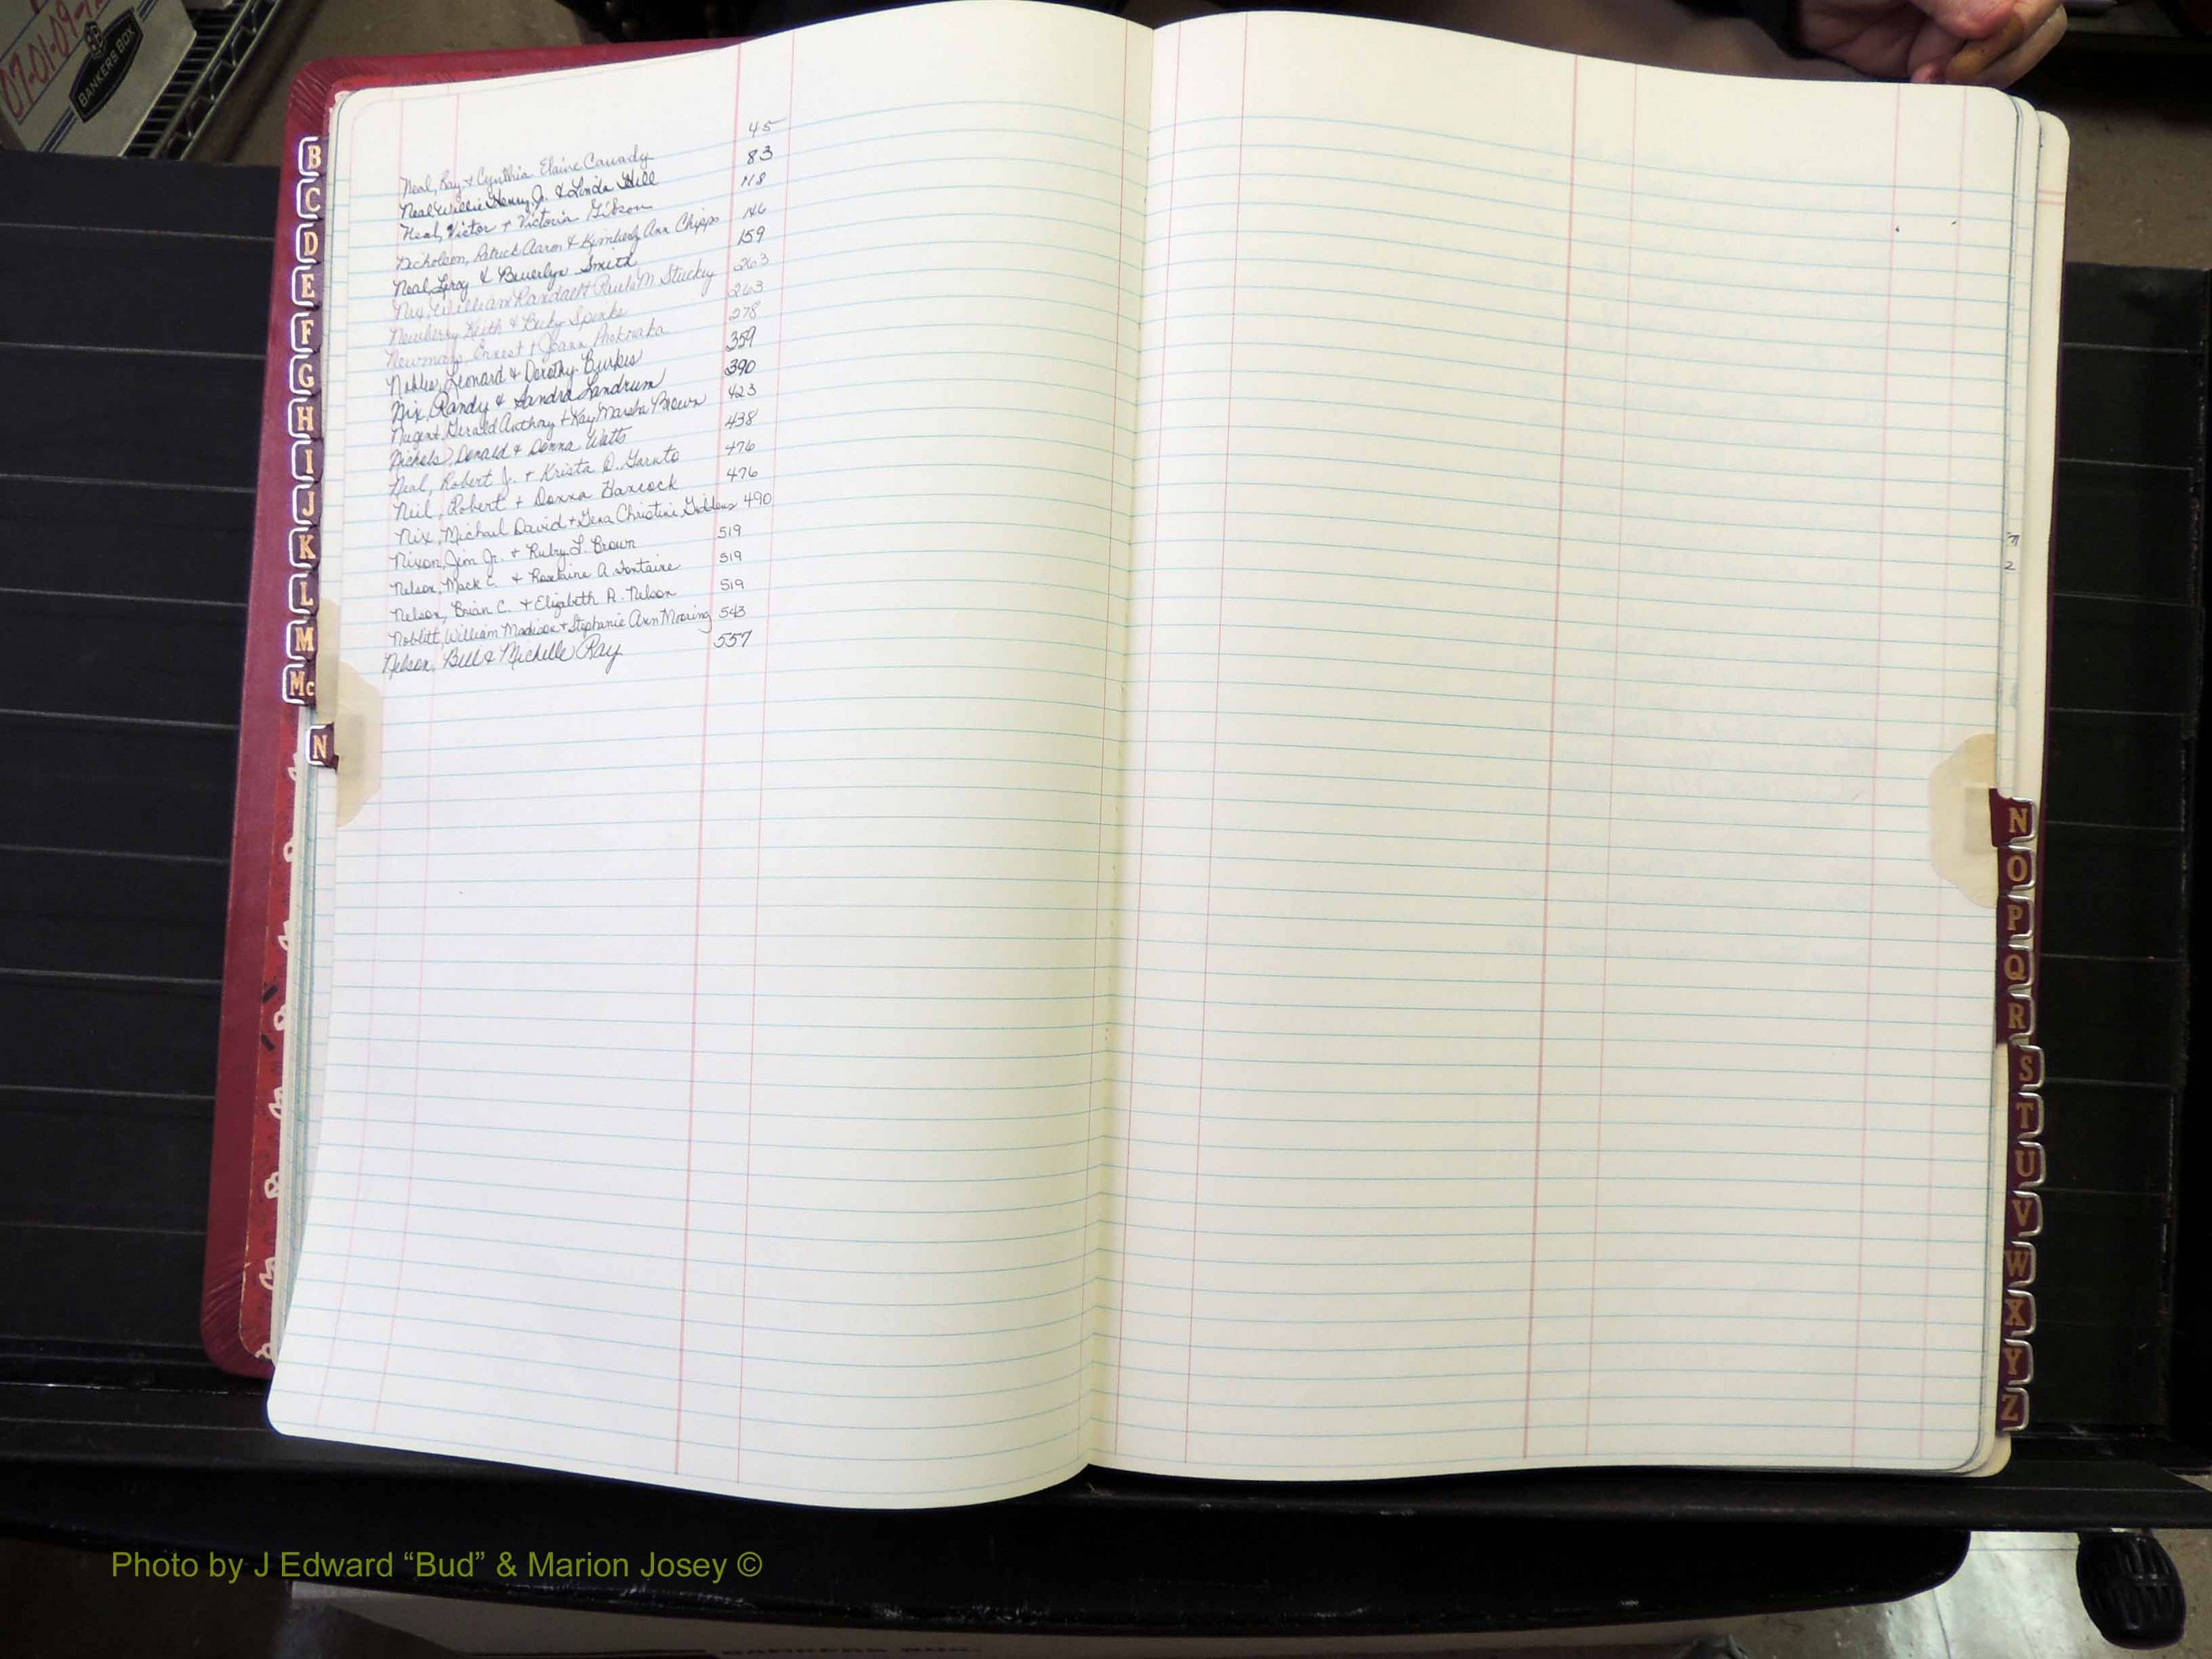 07-01-09-
BANKERS BOX
Neal, Ray + Cynthia Elaine Canady 45
Neal, Willie Henry, Jr. & Linda Hill 83
Neal, Victor + Victoria Gibson 118
Nicholson, Patrick Aaron & Kimberly Ann Chipps 146
Neal, Leroy & Beverlyn Smith 159
Nix, William Randall + Paula M. Stuckey 263
Newberry, Keith & Becky Spinks 263
Newman, Ernest + Joann 278
Nobles, Leonard & Dorothy Burkes 359
Nix, Randy & Sandra Landrum 390
Nugent, Gerald Anthony + Kay Marsha Brown 423
Nichols, Donald & Donna Watts 438
Neal, Robert J. + Krista D. 476
Neil, Robert + Donna Hancock 476
Nix, Michael David + Gena Christine Giddens 490
Nixon, Jim Jr. + Ruby L. Brown 519
Nelson, Mack C. & A. Fontaine 519
Nelson, Brian C. + Elizabeth R. Nelson 519
Noblitt, William Madison + Stephanie Ann Mooring 543
Nelson, Bill & Michelle Ray 557
B
C
D
E
F
G
H
I
J
K
L
M
Mc
N
N
O
P
Q
R
S
T
U
V
W
X
Y
Z
Photo by J Edward “Bud” & Marion Josey ©